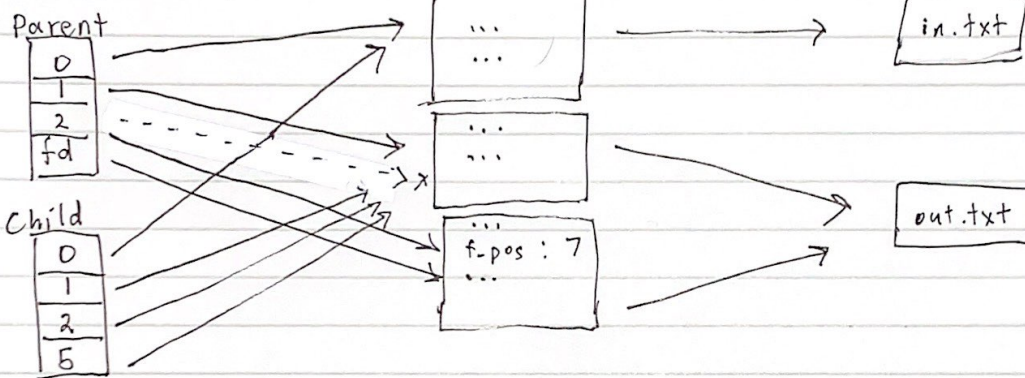 Parent
0
1
2
fd
Child
0
1
2
5
...
...
...
...
...
f_pos : 7
...
in.txt
out.txt
x